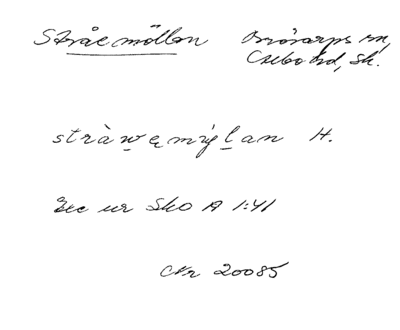 Stråemöllan Brösarps sn,
Albo hd, Sk.
stràwęmýlan H.
Exc ur SkO A 1:41
CNr 20085